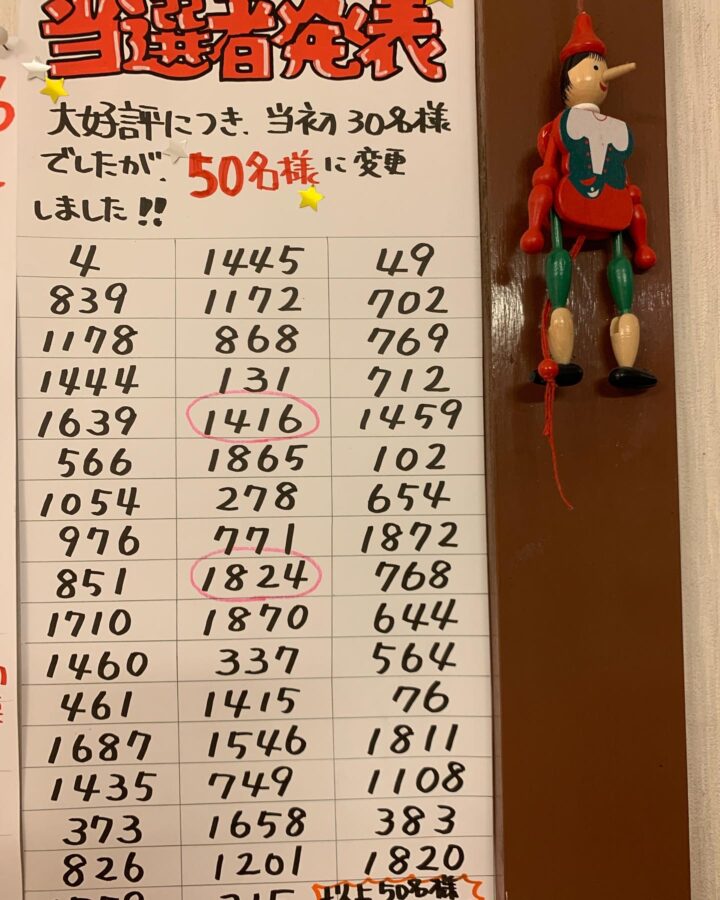 当選者発表
大好評につき、当初30名様
でしたが、50名様に変更
しました!!
4 1445 49
839 1172 702
1178 868 769
1444 131 712
1639 1416 1459
566 1865 102
1054 278 654
976 771 1872
851 1824 768
1710 1870 644
1460 337 564
461 1415 76
1687 1546 1811
1435 749 1108
373 1658 383
826 1201 1820
以上50名様